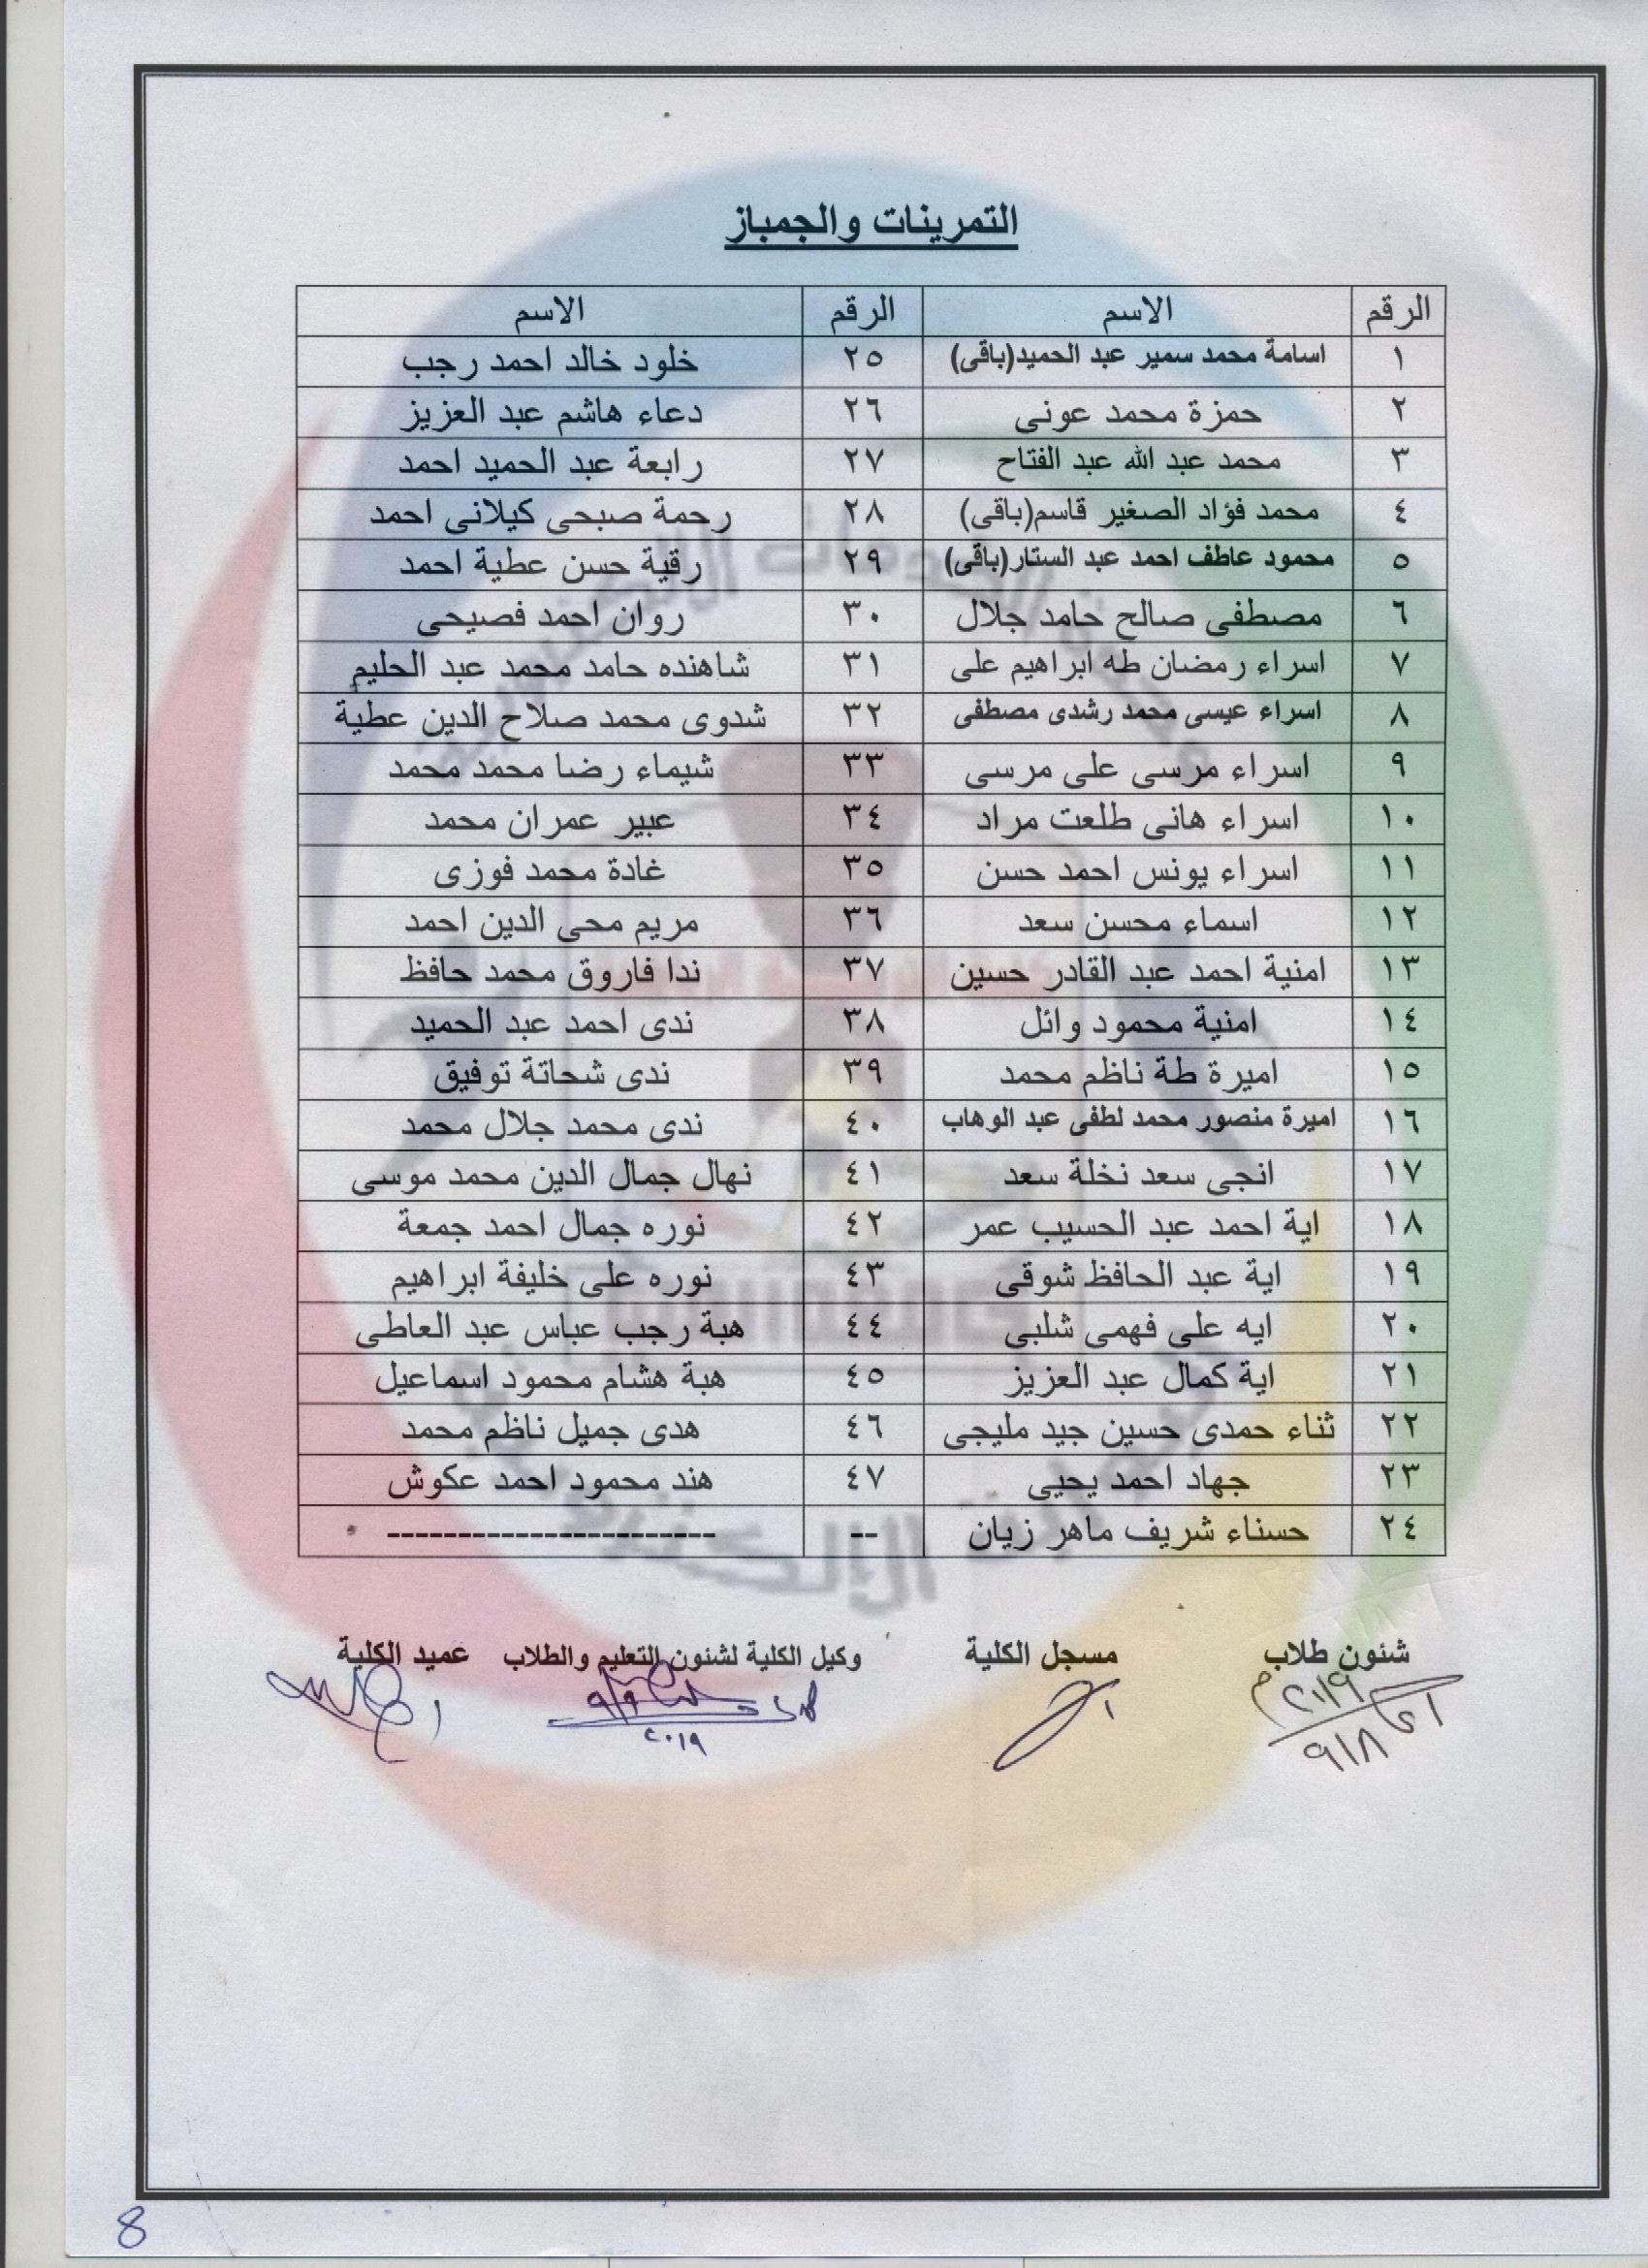 التمرينات والجمباز
الرقم الاسم الرقم الاسم
١ اسامة محمد سمير عبد الحميد(باقى) ٢٥ خلود خالد احمد رجب
٢ حمزة محمد عونى ٢٦ دعاء هاشم عبد العزيز
٣ محمد عبد الله عبد الفتاح ٢٧ رابعة عبد الحميد احمد
٤ محمد فؤاد الصغير قاسم(باقى) ٢٨ رحمة صبحى كيلانى احمد
٥ محمود عاطف احمد عبد الستار(باقى) ٢٩ رقية حسن عطية احمد
٦ مصطفى صالح حامد جلال ٣٠ روان احمد فصيحى
٧ اسراء رمضان طه ابراهيم على ٣١ شاهنده حامد محمد عبد الحليم
٨ اسراء عيسى محمد رشدى مصطفى ٣٢ شدوى محمد صلاح الدين عطية
٩ اسراء مرسى على مرسى ٣٣ شيماء رضا محمد محمد
١٠ اسراء هانى طلعت مراد ٣٤ عبير عمران محمد
١١ اسراء يونس احمد حسن ٣٥ غادة محمد فوزى
١٢ اسماء محسن سعد ٣٦ مريم محى الدين احمد
١٣ امنية احمد عبد القادر حسين ٣٧ ندا فاروق محمد حافظ
١٤ امنية محمود وائل ٣٨ ندى احمد عبد الحميد
١٥ اميرة طة ناظم محمد ٣٩ ندى شحاتة توفيق
١٦ اميرة منصور محمد لطفى عبد الوهاب ٤٠ ندى محمد جلال محمد
١٧ انجى سعد نخلة سعد ٤١ نهال جمال الدين محمد موسى
١٨ اية احمد عبد الحسيب عمر ٤٢ نوره جمال احمد جمعة
١٩ اية عبد الحافظ شوقى ٤٣ نوره على خليفة ابراهيم
٢٠ ايه على فهمى شلبى ٤٤ هبة رجب عباس عبد العاطى
٢١ اية كمال عبد العزيز ٤٥ هبة هشام محمود اسماعيل
٢٢ ثناء حمدى حسين جيد مليجى ٤٦ هدى جميل ناظم محمد
٢٣ جهاد احمد يحيى ٤٧ هند محمود احمد عكوش
٢٤ حسناء شريف ماهر زيان -- -----------------------
شئون طلاب مسجل الكلية وكيل الكلية لشئون التعليم والطلاب عميد الكلية
٢٠١٩
٢٠١٩م
٩/٨
8